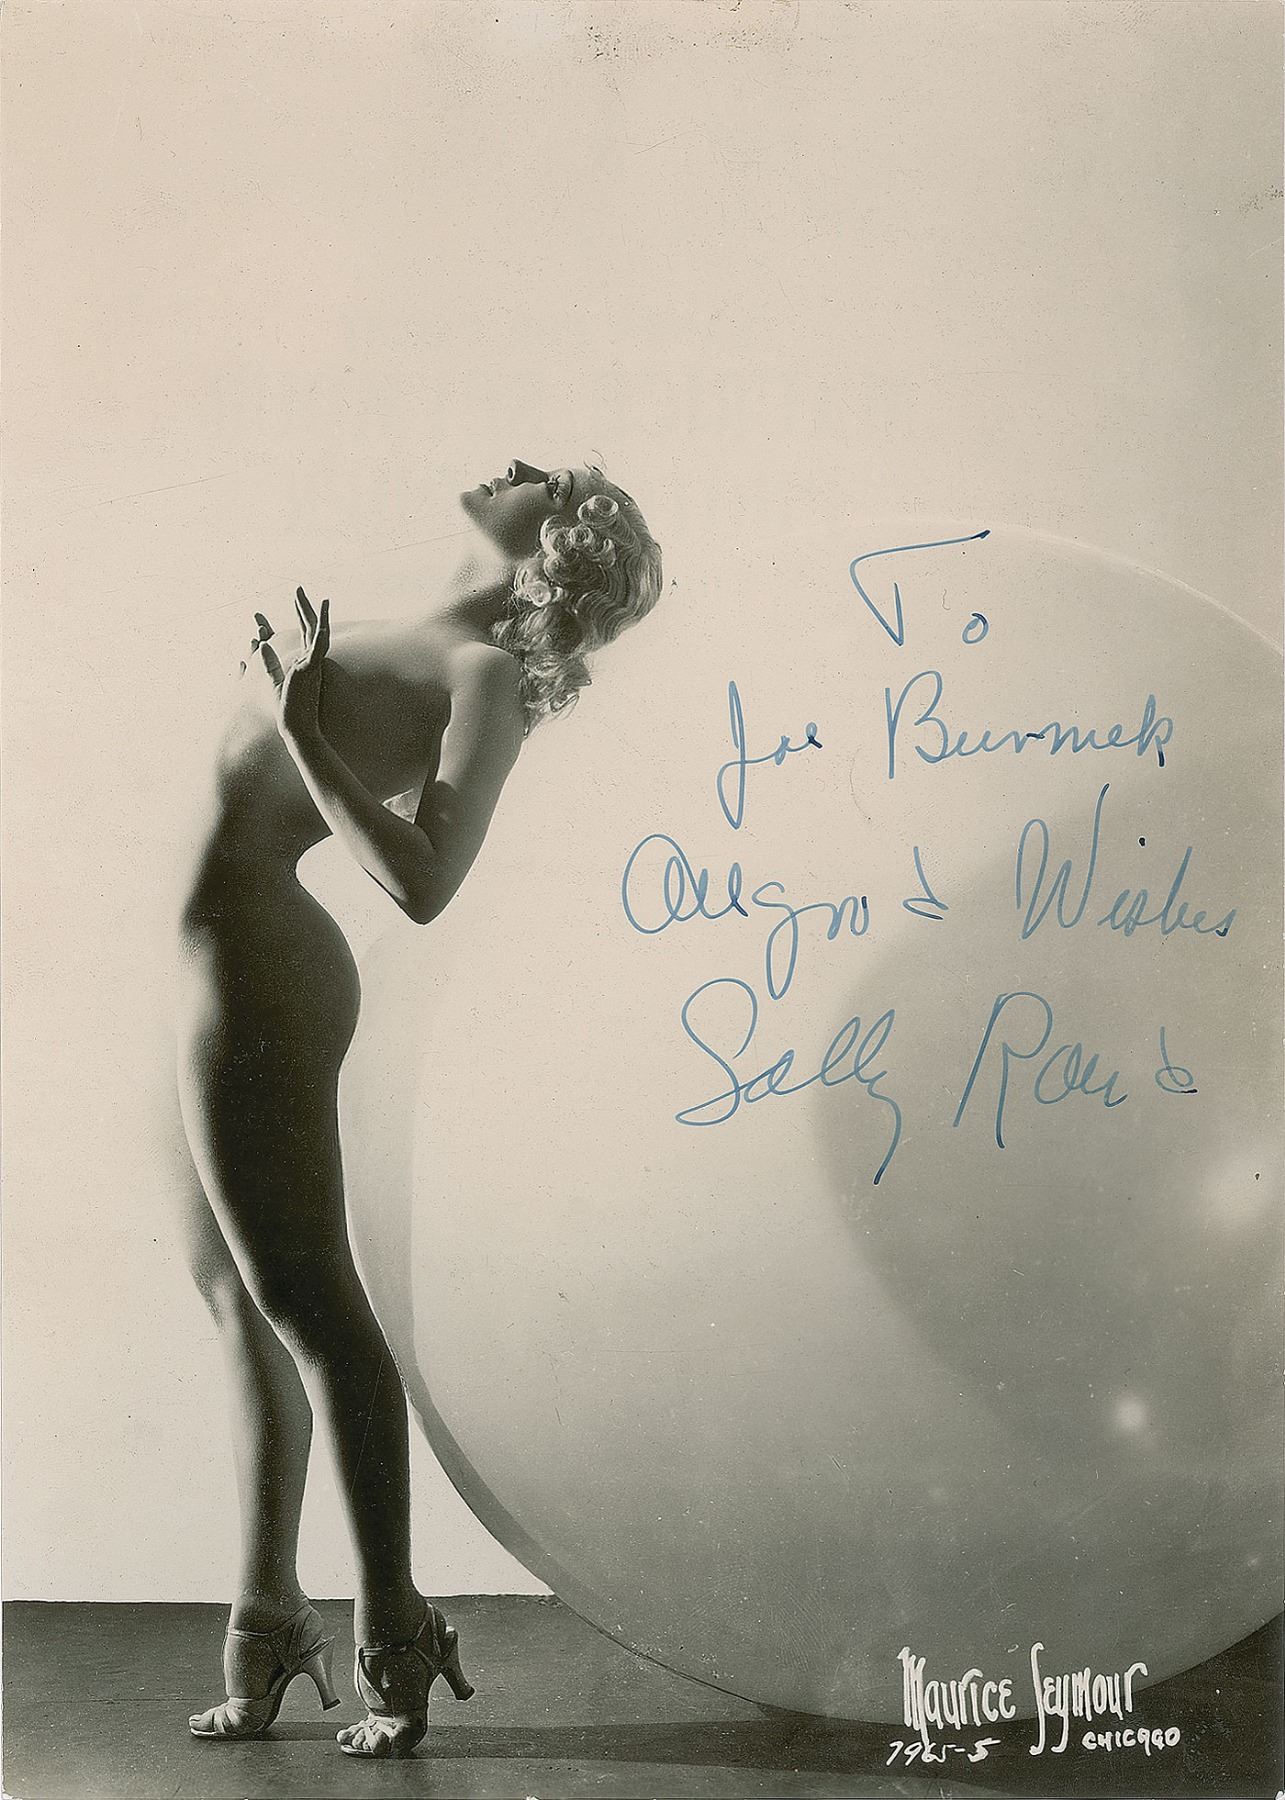 To
Joe Burmek
All good Wishes
Sally Rand
Maurice Seymour
CHICAGO
7965-5